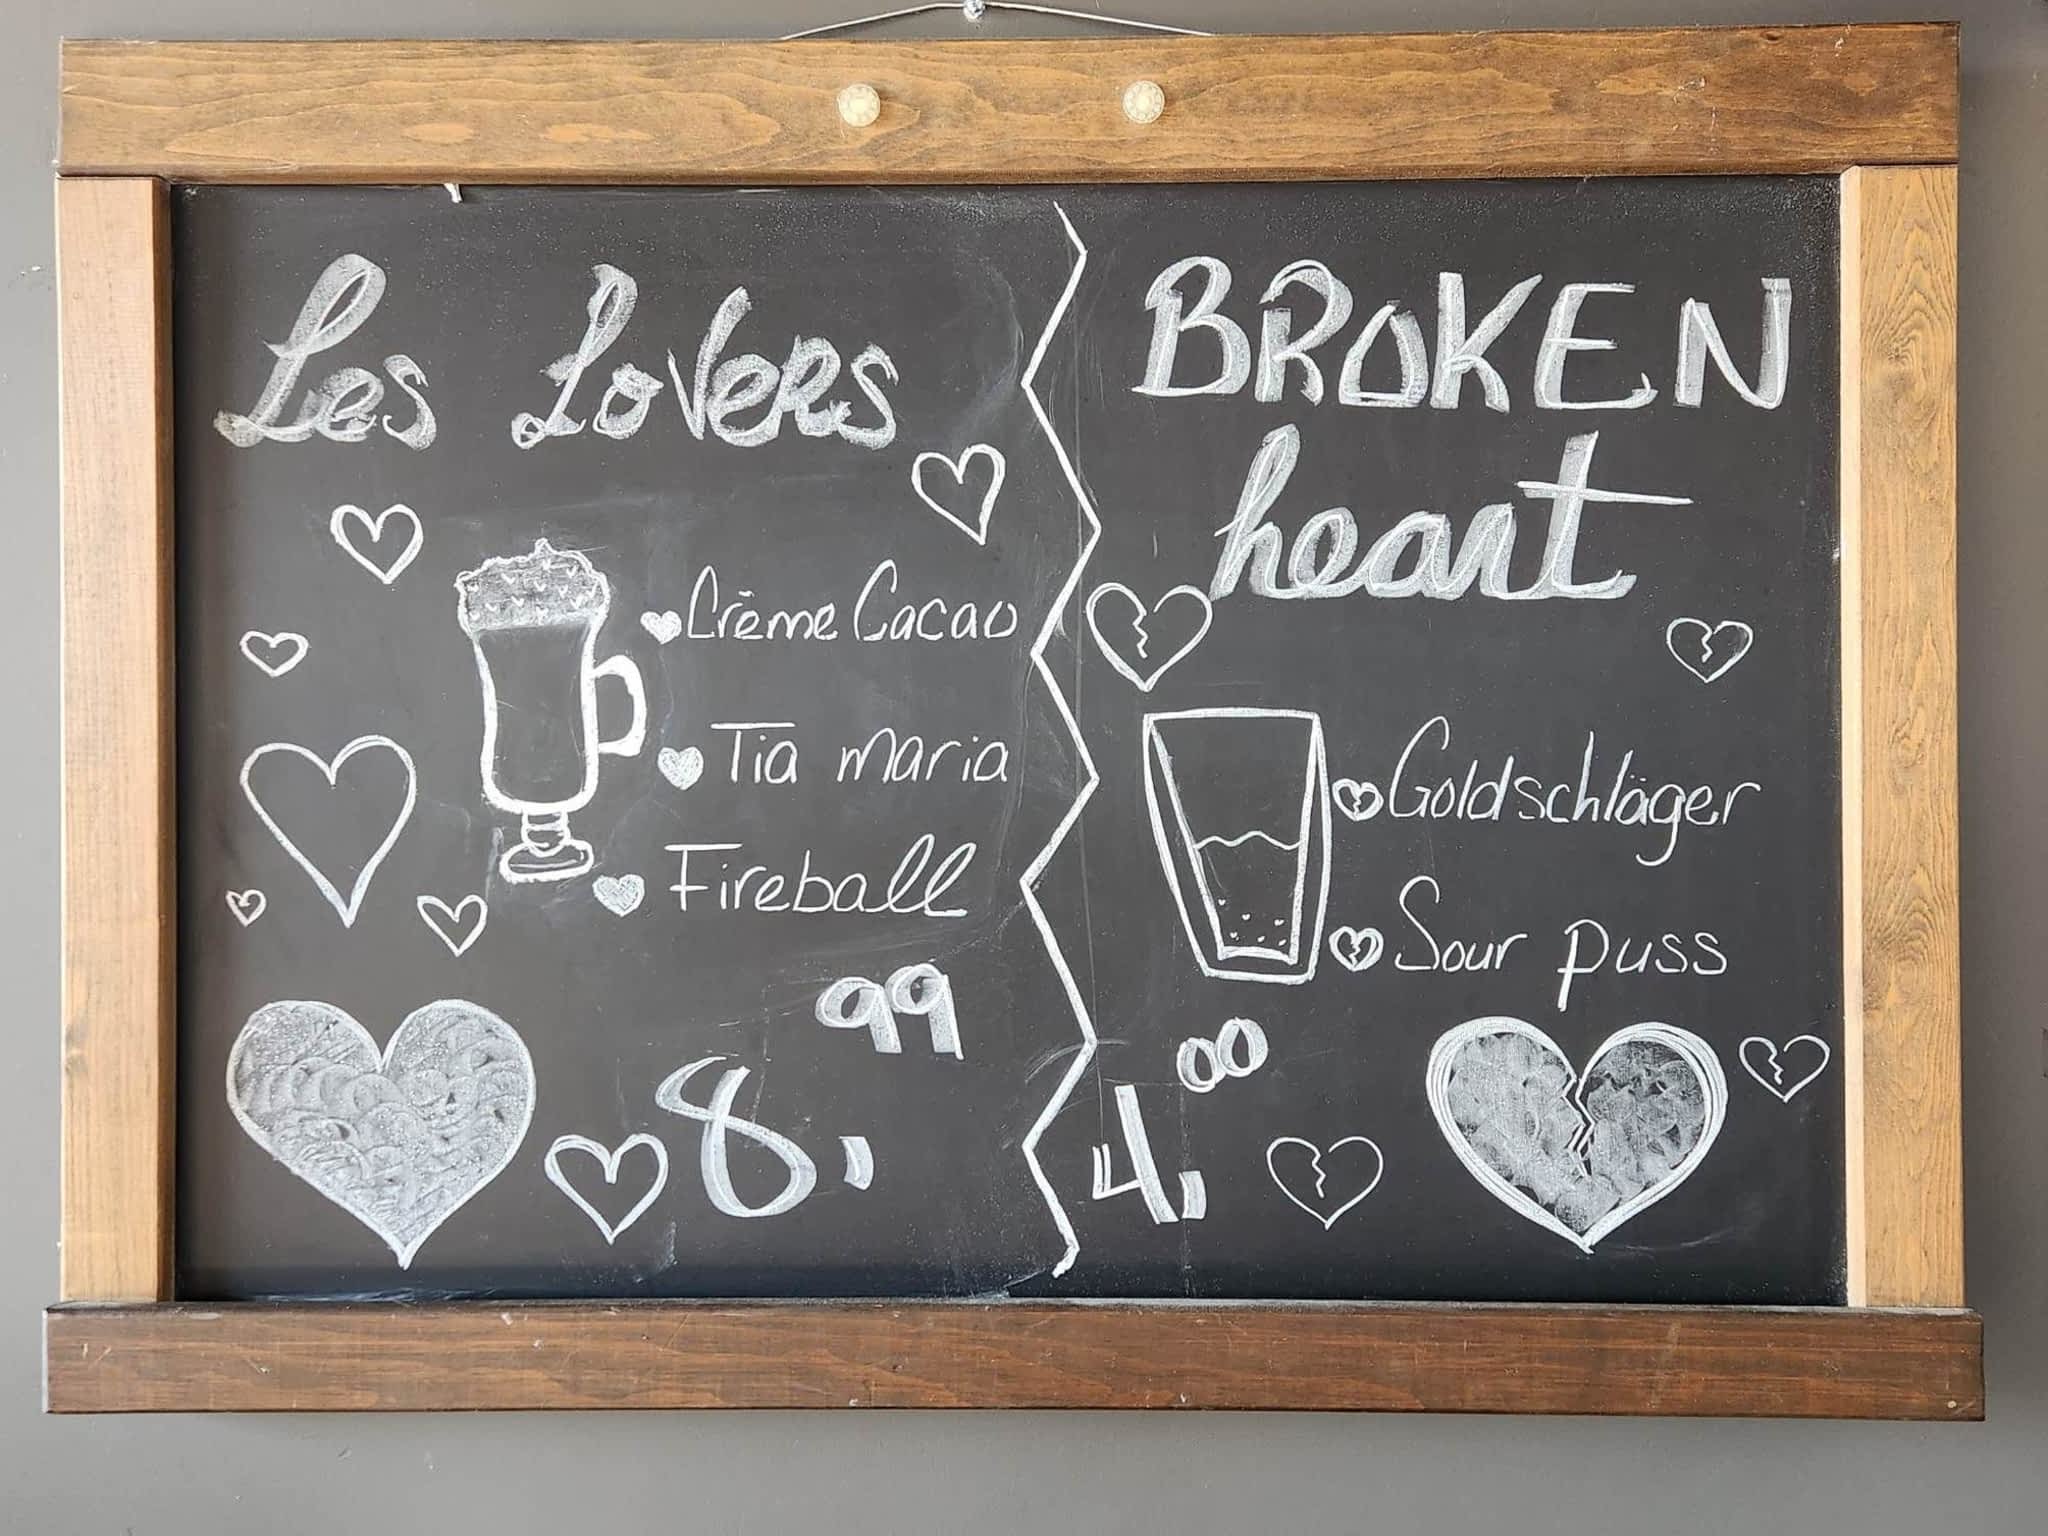 Les Lovers
Crème Cacao
Tia maria
Fireball
8,99
BROKEN
heart
Goldschläger
Sour puss
4,00